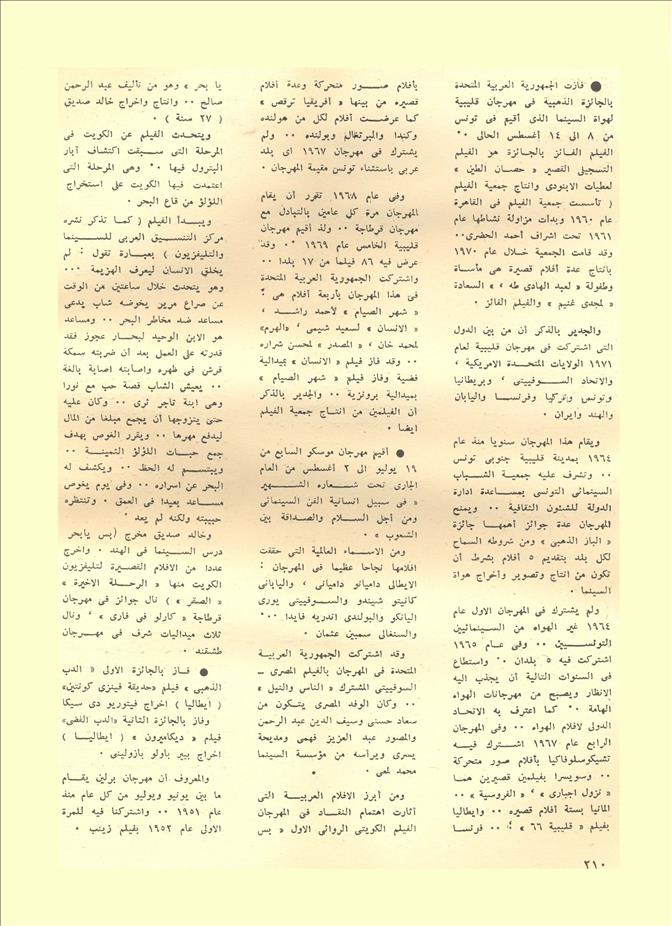 ● فازت الجمهورية العربية المتحدة
بالجائزة الذهبية فى مهرجان قليبية
لهواة السينما الذى أقيم فى تونس
من ٨ الى ١٤ أغسطس الحالى ٠٠
الفيلم الفائز بالجائزة هو الفيلم
التسجيلى القصير « حصان الطين »
لعطيات الابنودى وانتاج جمعية الفيلم
( تأسست جمعية الفيلم فى القاهرة
عام ١٩٦٠ وبدأت مزاولة نشاطها عام
١٩٦١ تحت اشراف أحمد الحضرى٠٠
وقد قامت الجمعية خلال عام ١٩٧٠
بانتاج عدة أفلام قصيرة هى مأساة
وطفولة « لعبد الهادى طه » ، السعادة
« لمجدى غنيم » والفيلم الفائز ٠
والجدير بالذكر أن من بين الدول
التى اشتركت فى مهرجان قليبية لعام
١٩٧١ الولايات المتحدة الامريكية ،
والاتحاد السوفييتى ، وبريطانيا
وتونس وتركيا وفرنسا واليابان
والهند وايران ٠
ويقام هذا المهرجان سنويا منذ عام
١٩٦٤ بمدينة قليبية جنوبى تونس
٠٠ وتشرف عليه جمعية الشباب
السينمائى التونسى بمساعدة ادارة
الدولة للشئون الثقافية ٠٠ ويمنح
المهرجان عدة جوائز أهمها جائزة
« الباز الذهبى » ومن شروطه السماح
لكل بلد بتقديم ٥ أفلام بشرط أن
تكون من انتاج وتصوير وأخراج هواة
السينما ٠
ولم يشترك فى المهرجان الاول عام
١٩٦٤ غير الهواه من السينمائيين
التونسيين ٠٠ وفى عام ١٩٦٥
اشتركت فيه ٥ بلدان ٠٠ واستطاع
فى السنوات التالية أن يجذب اليه
الانظار ويصبح من مهرجانات الهواه
الهامة ٠٠ كما اعترف به الاتحاد
الدولى لافلام الهواه ٠٠ وفى المهرجان
الرابع عام ١٩٦٧ اشترك فيه
تشيكوسلوفاكيا بأفلام صور متحركة
٠٠ وسويسرا بفيلمين قصيرين هما
« نزول اجبارى » ، « الفروسية » ٠٠
المانيا بستة أفلام قصيره ٠٠ وايطاليا
بفيلم « قليبية ٦٦ » ٠٠ فرنسا
بأفلام صور متحركة وعدة أفلام
قصيره من بينها « أفريقيا ترقص »
كما عرضت أفلام لكل من هولنده
وكندا والبرتغال وبولنده ٠٠ ولم
يشترك فى مهرجان ١٩٦٧ اى بلد
عربى باستثناء تونس مقيمة المهرجان ٠
وفى عام ١٩٦٨ تقرر أن يقام
المهرجان مرة كل عامين بالتبادل مع
مهرجان قرطاجة ٠٠ ولذ أقيم مهرجان
قليبية الخامس عام ١٩٦٩ ٠٠ وقد
عرض فيه ٨٦ فيلما من ١٧ بلدا ٠٠
واشتركت الجمهورية العربية المتحدة
فى هذا المهرجان بأربعة أفلام هى :
« شهر الصيام » لأحمد راشد ،
« الانسان » لسعيد شيمى ، «الهرم»
لمحمد خان ، « المصدر » لمحسن شراره
٠٠ وقد فاز فيلم « الانسان » بميدالية
فضية وفاز فيلم « شهر الصيام »
بميدالية برونزية ٠٠ والجدير بالذكر
أن الفيلمين من انتاج جمعية الفيلم
ايضا ٠
● أقيم مهرجان موسكو السابع من
١٩ يوليو الى ٢ أغسطس من العام
الجارى تحت شعاره الشهير
« فى سبيل انسانية الفن السينمائى
ومن أجل السلام والصداقة بين
الشعوب » ٠
ومن الاسماء العالمية التى حققت
افلامها نجاحا عظيما فى المهرجان :
الايطالى داميانو داميانى ، واليابانى
كانيتو شيندو والسوفييتى يورى
اليانكو والبولندى اندريه فايدا ٠٠
والسنغالى سمبين عثمان ٠
وقد اشتركت الجمهورية العربية
المتحدة فى المهرجان بالفيلم المصرى ــ
السوفييتى المشترك « الناس والنيل »
٠٠ وكان الوفد المصرى يتكون من
سعاد حسنى وسيف الدين عبد الرحمن
والمصور عبد العزيز فهمى ومديحة
يسرى ويرأسه من مؤسسة السينما
محمد لمعى ٠
ومن أبرز الافلام العربية التى
أثارت اهتمام النقاد فى المهرجان
الفيلم الكويتى الروائى الاول « بس
يا بحر » وهو من تأليف عبد الرحمن
صالح ٠٠ وانتاج واخراج خالد صديق
( ٢٧ سنة ) ٠
ويتحدث الفيلم عن الكويت فى
المرحلة التى سبقت اكتشاف آبار
البترول فيها ٠٠ وهى المرحلة التى
اعتمدت فيها الكويت على استخراج
اللؤلؤ من قاع البحر ٠
ويبدأ الفيلم ( كما تذكر نشره
مركز التنسيق العربى للسينما
والتليفزيون ) بعبارة تقول : لم
يخلق الانسان ليعرف الهزيمة ٠٠٠
وهو يتحدث خلال ساعتين من الوقت
عن صراع مرير يخوضه شاب يدعى
مساعد ضد مخاطر البحر ٠٠ ومساعد
هو الابن الوحيد لبحار عجوز فقد
قدرته على العمل بعد أن ضربته سمكة
قرش فى ظهره واصابته إصابة بالغة
٠٠ يعيش الشاب قصة حب مع نورا
وهى ابنة تاجر ثرى ٠٠ وكان عليه
حتى يتزوجها أن يجمع مبلغا من المال
ليدفع مهرها ٠٠ ويقرر الغوص بهدف
جمع حبات اللؤلؤ الثمينة ٠٠
ويبتسم له الحظ ٠٠ ويكشف له
البحر عن اسراره ٠٠ وفى يوم يغوص
مساعد بعيدا فى العمق ٠ وتنتظره
حبيبته ولكنه لم يعد ٠
وخالد صديق مخرج (بس يابحر
درس السينما فى الهند ٠ واخرج
عددا من الافلام القصيرة لتليفزيون
الكويت منها « الرحلة الاخيرة »
« الصقر » ) نال جوائز فى مهرجان
قرطاجة « كارلو فى فارى » ، ونال
ثلاث ميداليات شرف فى مهرجان
طشقند ٠
● فاز بالجائزة الاولى « الدب
الذهبى » فيلم «حديقة فينزى كونتين»
( ايطاليا ) اخراج فيتوريو دى سيكا
وفاز بالجائزة الثانية «الدب الفضى»
فيلم « ديكاميرون » ( ايطاليا )
اخراج بيير باولو بازولينى ٠
والمعروف أن مهرجان برلين يقام
ما بين يونيو ويوليو من كل عام منذ
عام ١٩٥١ ٠٠ واشتركنا فيه للمرة
الاولى عام ١٩٥٢ بفيلم زينب ٠
٢١٠